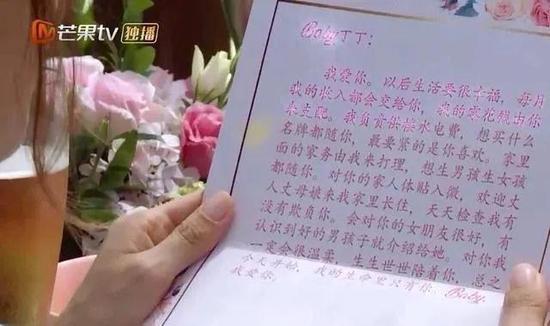 芒果tv 独播
Baby丁丁：
我爱你。以后生活要很幸福，每月
我的收入都会交给你，我的零花钱由你
来支配。我负责供楼水电费，想买什么
名牌都随你，最要紧的是你喜欢。家里
面的家务由我来打理，想生男孩生女孩
都随你。对你的家人体贴入微，欢迎丈
人丈母娘来我家里长住，天天检查我有
没有欺负你。会对你的女朋友很好，有
认识到好的男孩子就介绍给她。对你我
一定会很温柔，生生世世陪着你，总之
今天开始，我的生命里只有你，Baby，
我爱你。